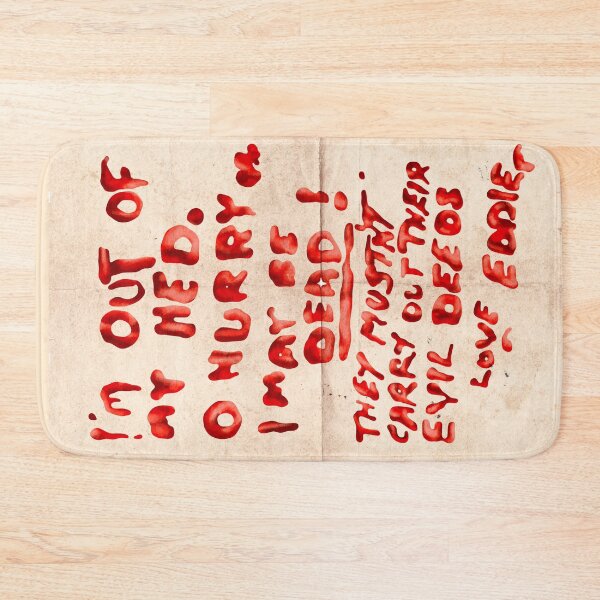 I'M OUT OF
MY HED.
O HURRY OR
I MAY BE
DEAD!
THEY MUSTN'T.
CARRY OUT THEIR
EVIL DEEDS
LOVE
EDDIE